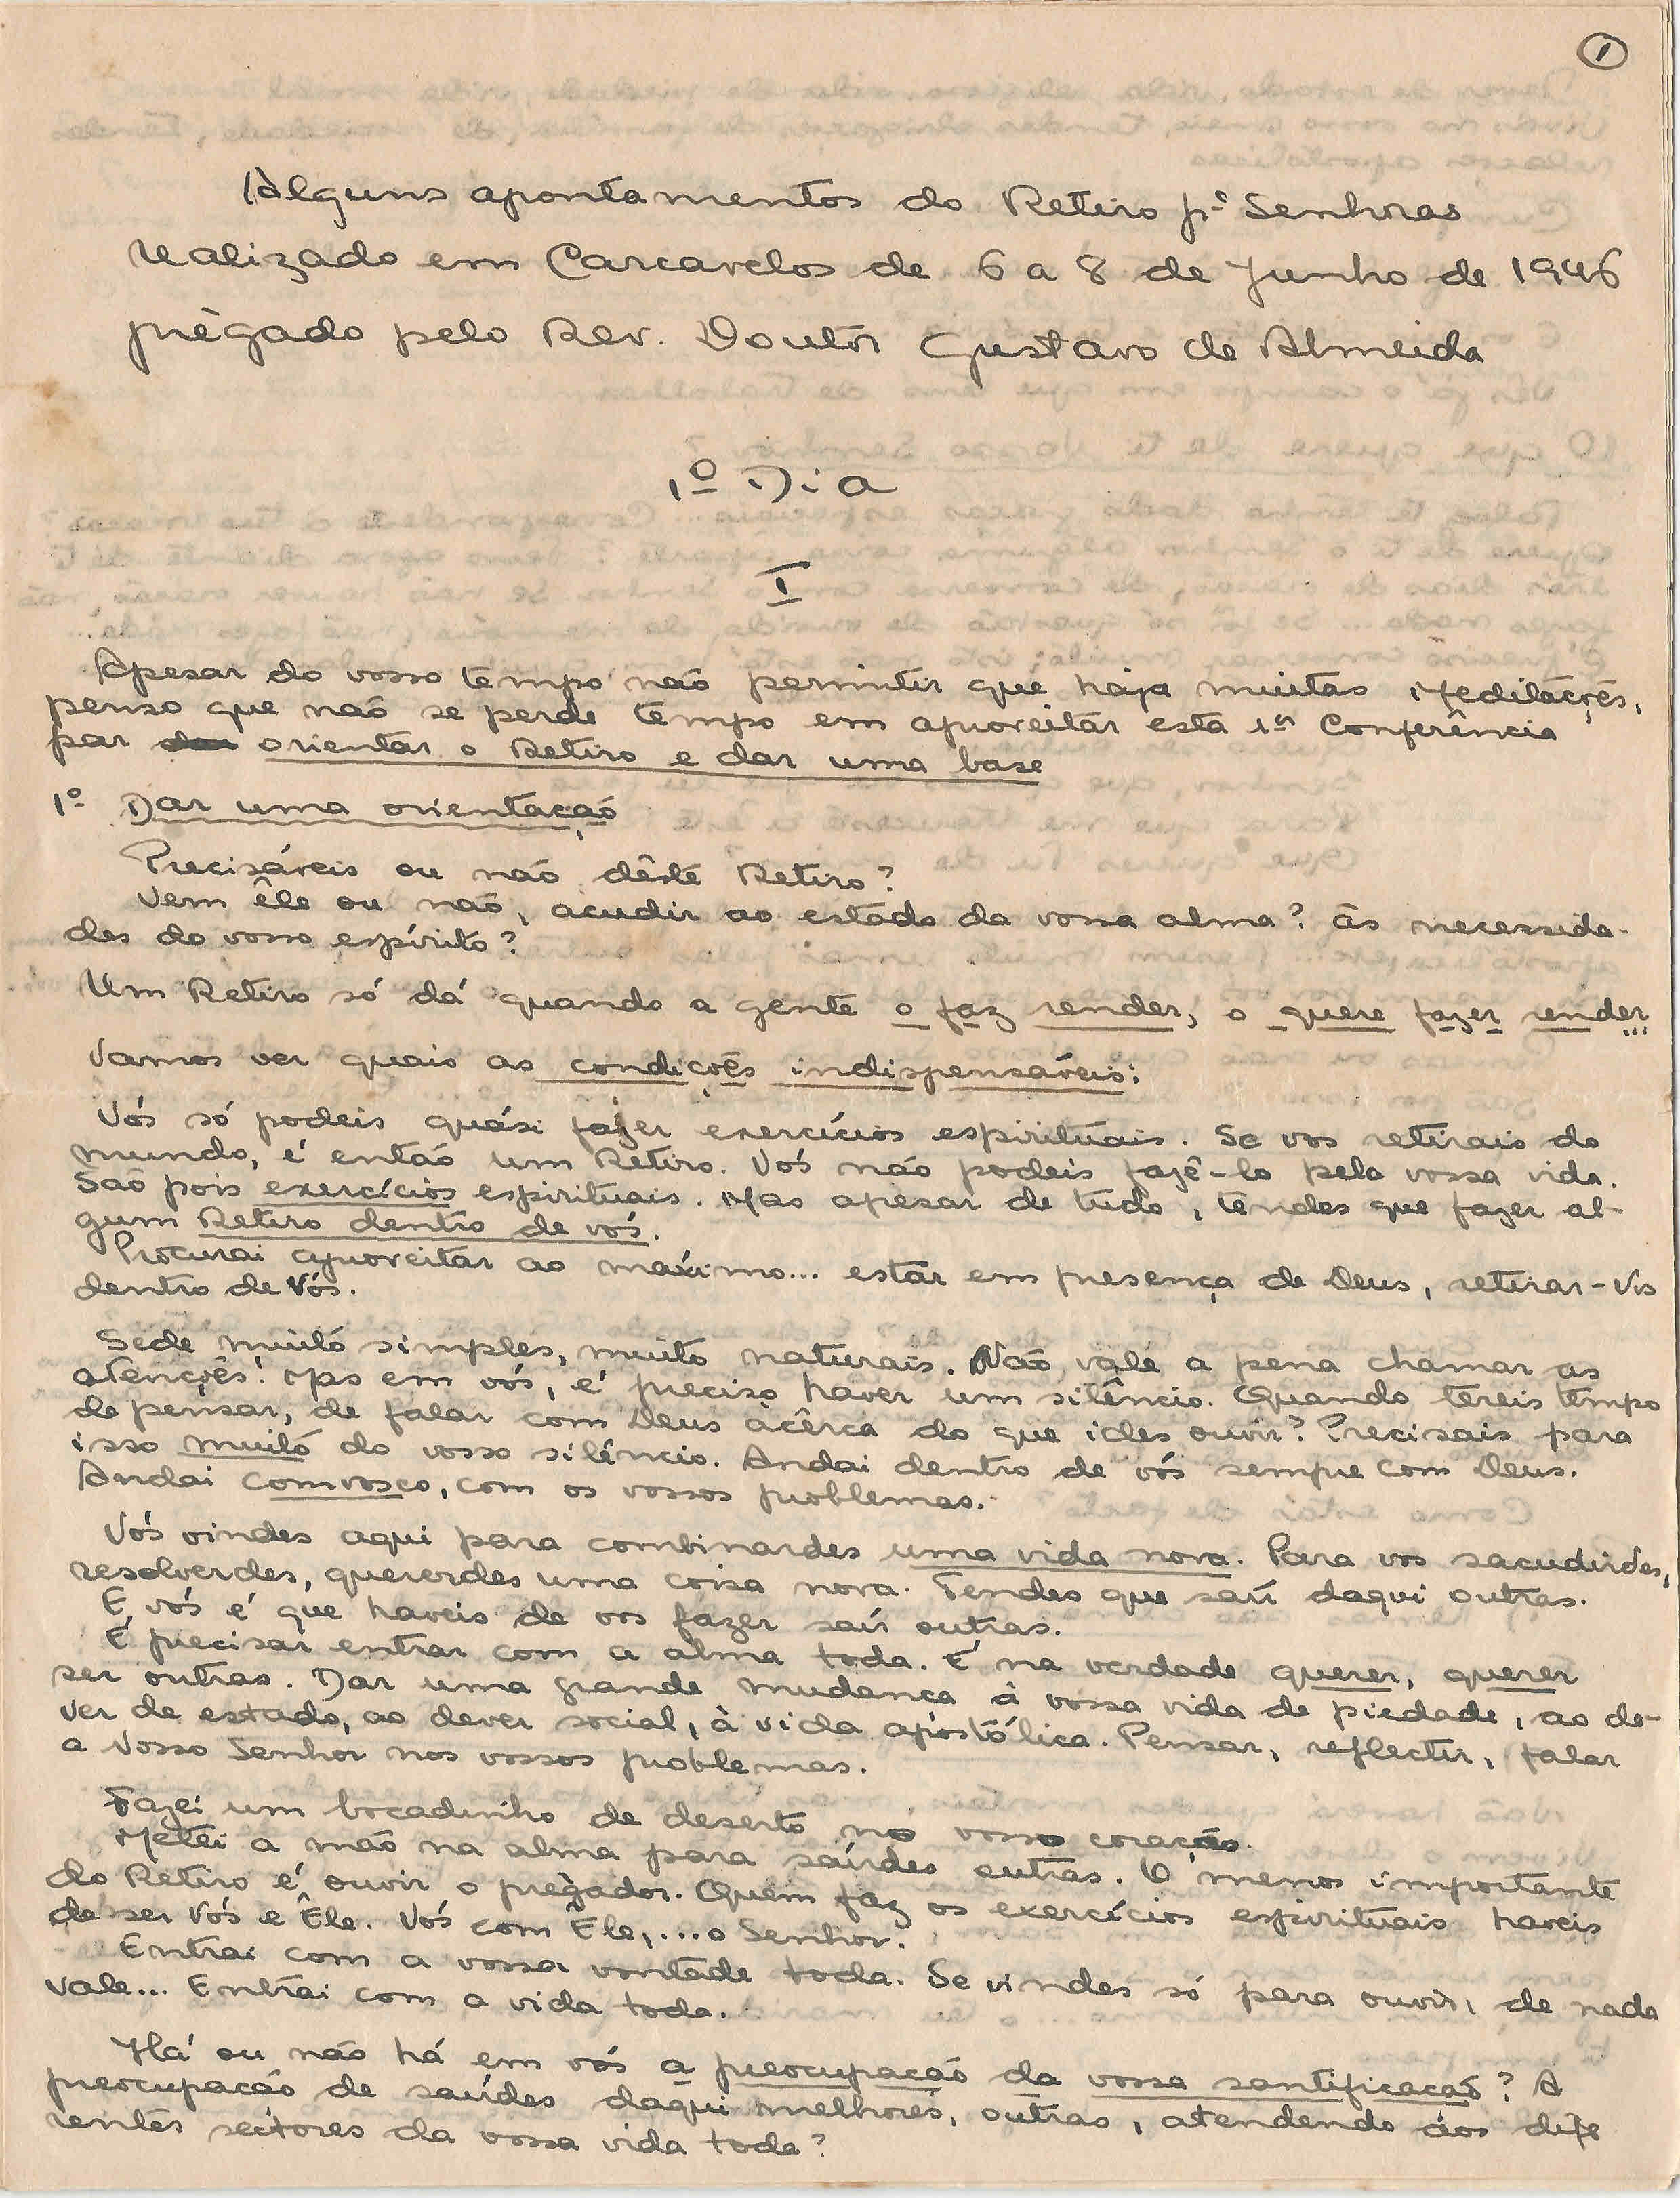 1
Alguns apontamentos do Retiro pª Senhoras
realizado em Carcavelos de 6 a 8 de Junho de 1946
prègado pelo Rev. Doutôr Gustavo de Almeida
1º Dia
I
Apesar do vosso tempo não permitir que haja muitas Meditações,
penso que não se perde tempo em aproveitar esta 1ª Conferência
par orientar o Retiro e dar uma base
1º Dar uma orientação
Precisáveis ou não dêste Retiro?
Vem êle ou não, acudir ao estado da vossa alma? às necessida-
des do vosso espírito?
Um Retiro só dá quando a gente o faz render, o quere fazer render...
Vamos ver quais as condições indispensáveis:
Vós só podeis quási fazer exercícios espirituais. Se vos retirais do
mundo, é então um Retiro. Vós não podeis fazê-lo pela vossa vida.
São pois exercícios espirituais. Mas apesar de tudo, tendes que fazer al-
gum Retiro dentro de vós.
Procurai aproveitar ao máximo... estar em presença de Deus, retirar-vos
dentro de Vós.
Sede muito simples, muito naturais. Não vale a pena chamar as
atenções! Mas em vós, é preciso haver um silêncio. Quando tereis tempo
de pensar, de falar com Deus àcêrca do que ides ouvir? Precisais para
isso muito do vosso silêncio. Andai dentro de vós sempre com Deus.
Andai comvosco, com os vossos problemas.
Vós vindes aqui para combinardes uma vida nova. Para vos sacudirdes,
resolverdes, quererdes uma coisa nova. Tendes que saír daqui outras.
E vós é que haveis de vos fazer saír outras.
É precisar entrar com a alma toda. É na verdade querer, querer
ser outras. Dar uma grande mudança à vossa vida de piedade, ao de-
ver de estado, ao dever social, à vida apostólica. Pensar, reflectir, falar
a Nosso Senhor nos vossos problemas.
Fazei um bocadinho de deserto no vosso coração.
Metei a mão na alma para saírdes outras. O menos importante
do Retiro é ouvir o prègador. Quem faz os exercícios espirituais haveis
de ser Vós e Êle. Vós com Êle,... o Senhor.
Entrai com a vossa vontade toda. Se vindes só para ouvir, de nada
vale... Entrai com a vida toda.
Há ou não há em vós a preocupação da vossa santificação? A
preocupação de saírdes daqui melhores, outras, atendendo aos dife
rentes sectores da vossa vida toda?